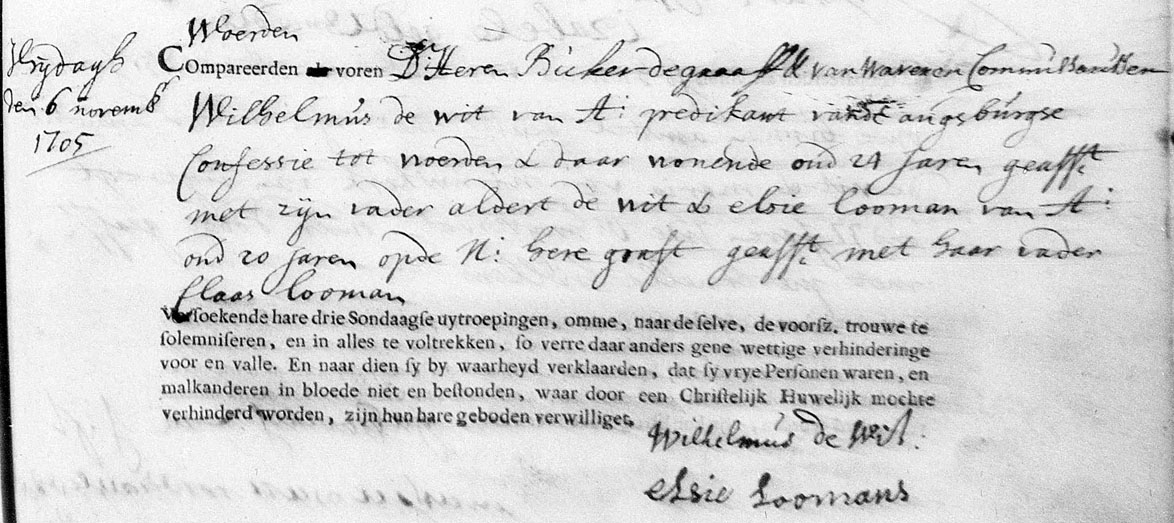 Woerden
Vrydagh
den 6 novembr
1705
COmpareerden als voren Dr. Heren Bicker de graaff & van waveren Commissarissen
Wilhelmus de wit van A: predikant vande augsburgse
Confessie tot woerden & daar wonende oud 24 Jaren geasst
met zijn vader aldert de wit & elsie Looman van A:
oud 20 Jaren opde N: here graft geasst met haar vader
Claas Looman
Versoekende hare drie Sondaagſe uytroepingen, omme, naar de ſelve, de voorſz. trouwe te
ſolemniſeren, en in alles te voltrekken, ſo verre daar anders gene wettige verhinderinge
voor en valle. En naar dien ſy by waarheyd verklaarden, dat ſy vrye Perſonen waren, en
malkanderen in bloede niet en beſtonden, waar door een Chriſtelijk Huwelijk mochte
verhinderd worden, zijn hun hare geboden verwilliget.
Wilhelmus de Wit.
elsie Loomans